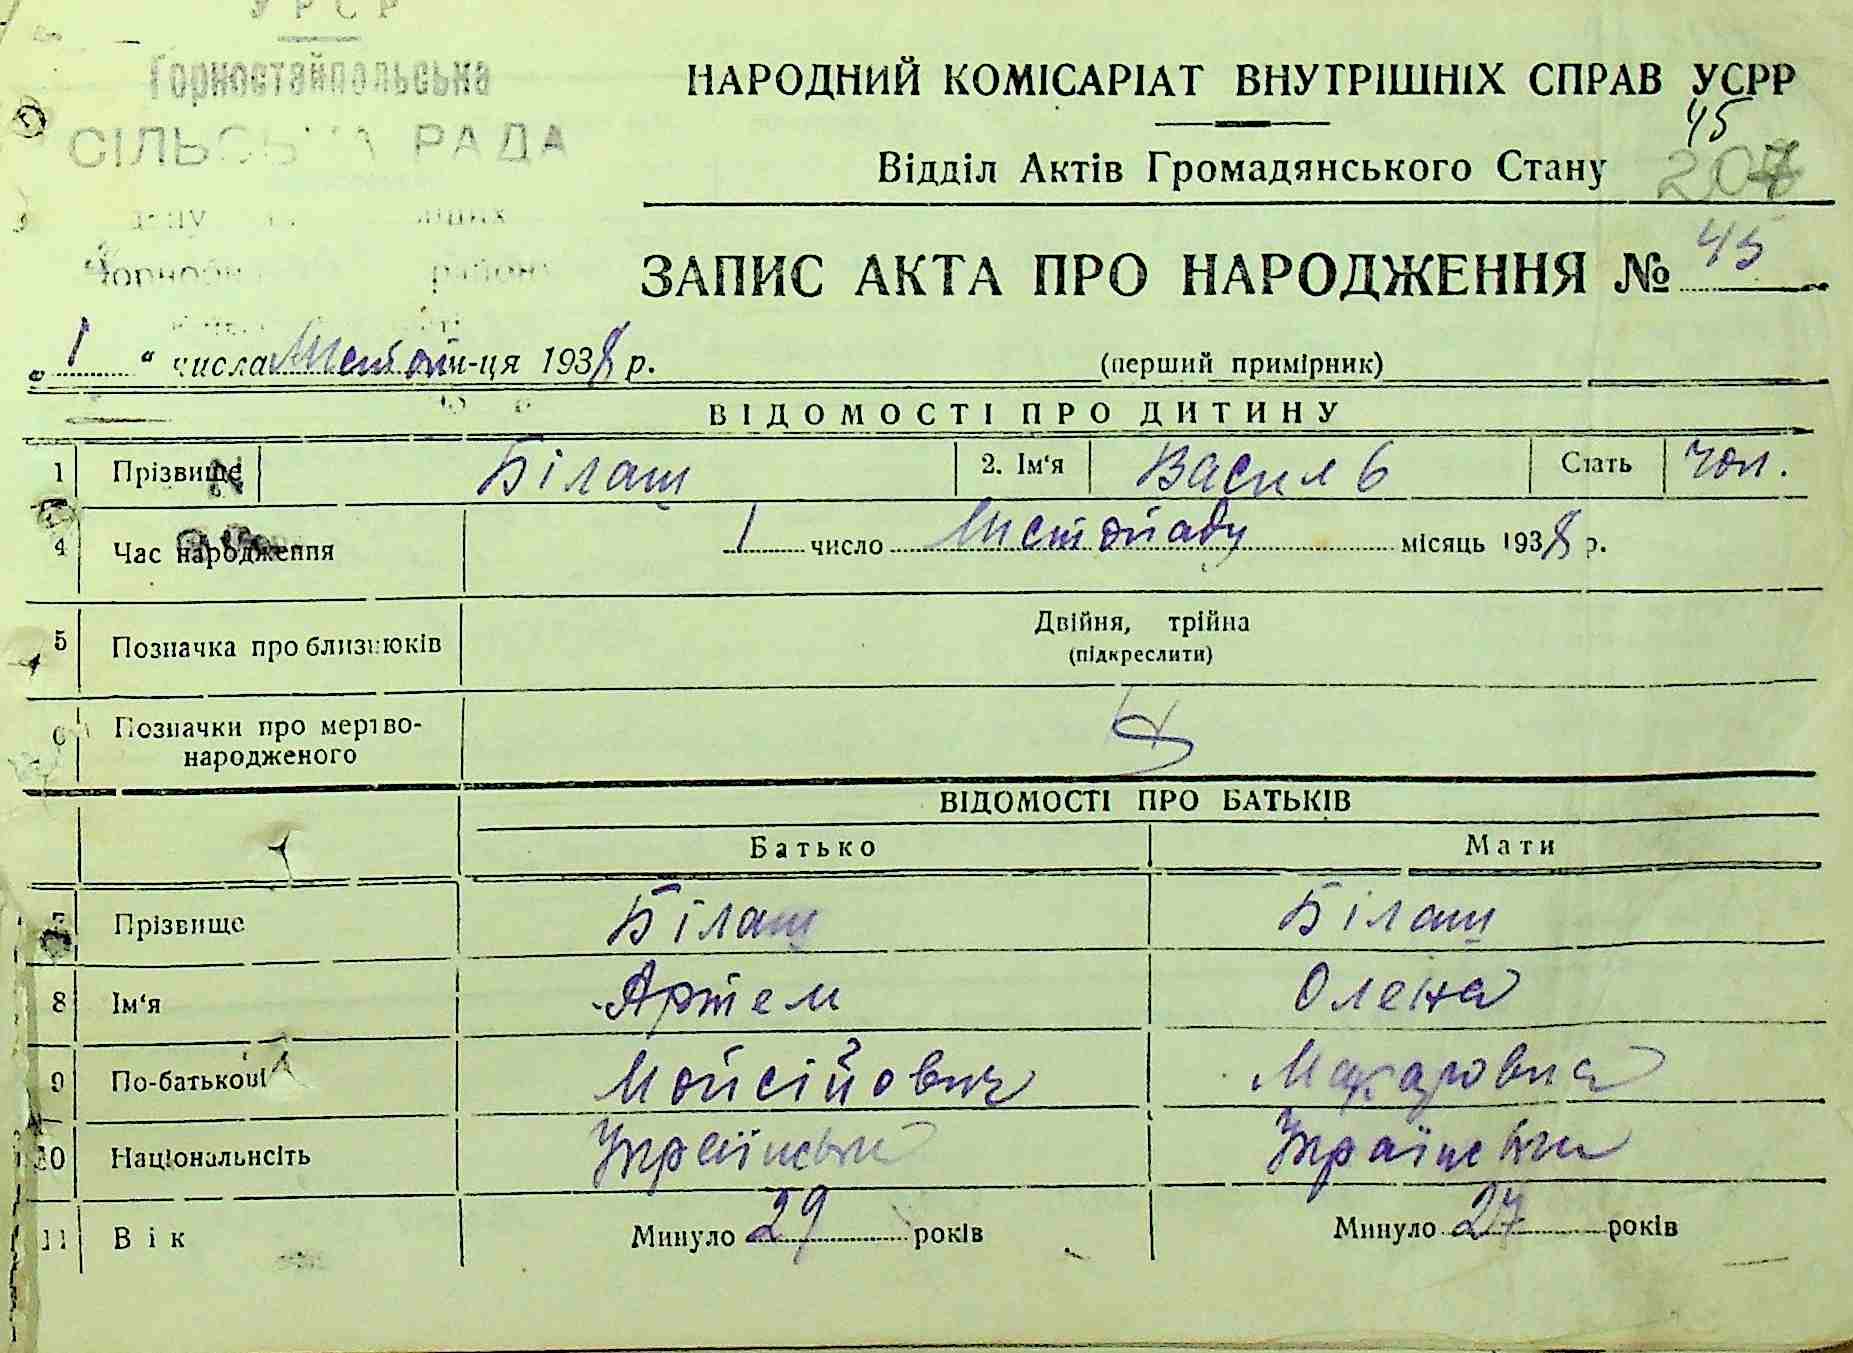 УРСР
Горностайпольська
СІЛЬСЬКА РАДА
районі
НАРОДНИЙ КОМІСАРІАТ ВНУТРІШНІХ СПРАВ УСРР
45
Відділ Актів Громадянського Стану 207
ЗАПИС АКТА ПРО НАРОДЖЕННЯ № 45
„ 1 “ числа Листоп м-ця 1938 р. (перший примірник)
ВІДОМОСТІ ПРО ДИТИНУ
1 Прізвище Білаш 2. Ім‘я Василь Стать чол.
4 Час народження 1 число Листопаду місяць 1938 р.
5 Позначка про близнюків Двійня, трійна
(підкреслити)
6 Позначки про мертво-
народженого
ВІДОМОСТІ ПРО БАТЬКІВ
Батько Мати
7 Прізвище Білаш Білаш
8 Ім‘я Артем Олена
9 По-батькові Мойсійович Макаровна
10 Національнсіть Українськи Українськи
11 Вік Минуло 29 років Минуло 27 років